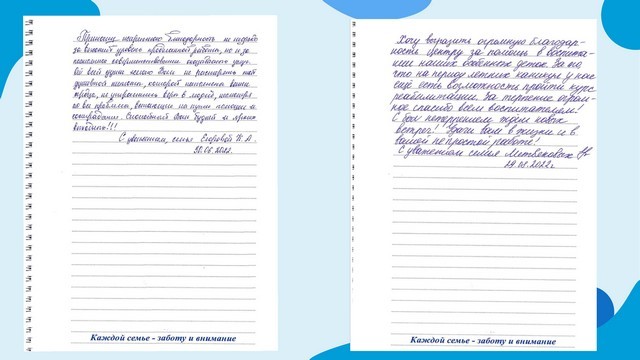 Приношу искреннюю благодарность не только
за высокий уровень проделанной работы, но и за
постоянное совершенствование
всей души желаю Вам не растерять той
душевной теплоты, которой наполнен ваш
труд, не утратить веры в людей, несмотря
на все проблемы, на пути помощи и
сострадания. Спокойных Вам будней и ярких
выходных!!!
С уважением, семья
30.08.2022.
Каждой семье - заботу и внимание
Хочу выразить огромную благодар-
ность Центру за помощь в воспита-
нии наших особенных деток. За то,
что на период летних каникул у нас
ещё есть возможность пройти курс
реабилитации. За терпение огром-
ное спасибо всем воспитателям!
С большим нетерпением ждем новых
встреч! Удачи вам в жизни и в
вашей не простой работе!
С уважением семья
29.08.2022г
Каждой семье - заботу и внимание